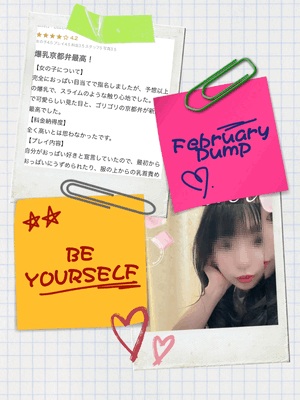 4.2
爆乳京都弁最高！
【女の子について】
完全におっぱい目当てで指名しましたが、予想以上
の爆乳で、スライムのような触り心地でした。
で可愛らしい見た目と、ゴリゴリの京都弁が新
最高でした。
【料金納得度】
全く高いとは思わなかったです。
【プレイ内容】
自分がおっぱい好きと宣言していたので、最初から
おっぱいにうずめられたり、服の上からの乳首責め
FEBRUARY
DUMP
BE
YOURSELF